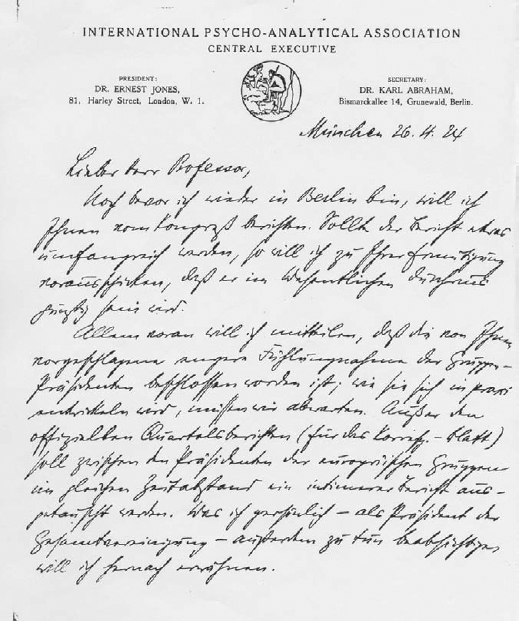 INTERNATIONAL PSYCHO-ANALYTICAL ASSOCIATION
CENTRAL EXECUTIVE
PRESIDENT:
DR. ERNEST JONES,
81, Harley Street, London, W. 1.
SECRETARY:
DR. KARL ABRAHAM,
Bismarckallee 14, Grunewald, Berlin.
München 26. 4. 24
Lieber Herr Professor,
Noch bevor ich wieder in Berlin bin, will ich
Ihnen vom Kongreß berichten. Sollte der Bericht etwas
umfangreich werden, so will ich zu Ihrer Ermutigung
vorausschicken, daß er im Wesentlichen durchaus
günstig sein wird.
Allem voran will ich mitteilen, daß die von Ihnen
vorgeschlagene engere Fühlungnahme der Gruppen-
Präsidenten beschlossen worden ist; wie sie sich in praxi
entwickeln wird, müssen wir abwarten. Außer den
offiziellen Quartalsberichten (für das Korresp.-blatt)
soll zwischen den Präsidenten der europäischen Gruppen
im gleichen Zeitabstand ein intimerer Bericht aus-
getauscht werden. Was ich persönlich – als Präsident der
Gesamtvereinigung – außerdem zu tun beabsichtige,
will ich hernach erwähnen.